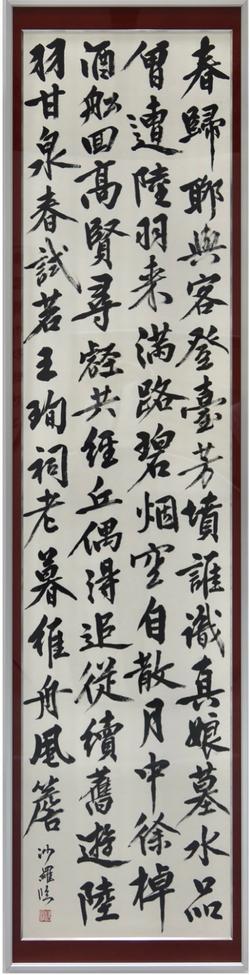 春歸聊與客登臺芳墳誰識真娘墓水品
曾遭陸羽来滿路碧烟空自散月中徐棹
酒舩回高賢尋壑共經丘偶得追從續舊遊陸
羽甘泉春試茗王珣祠老暮維舟風簷
沙羅臨